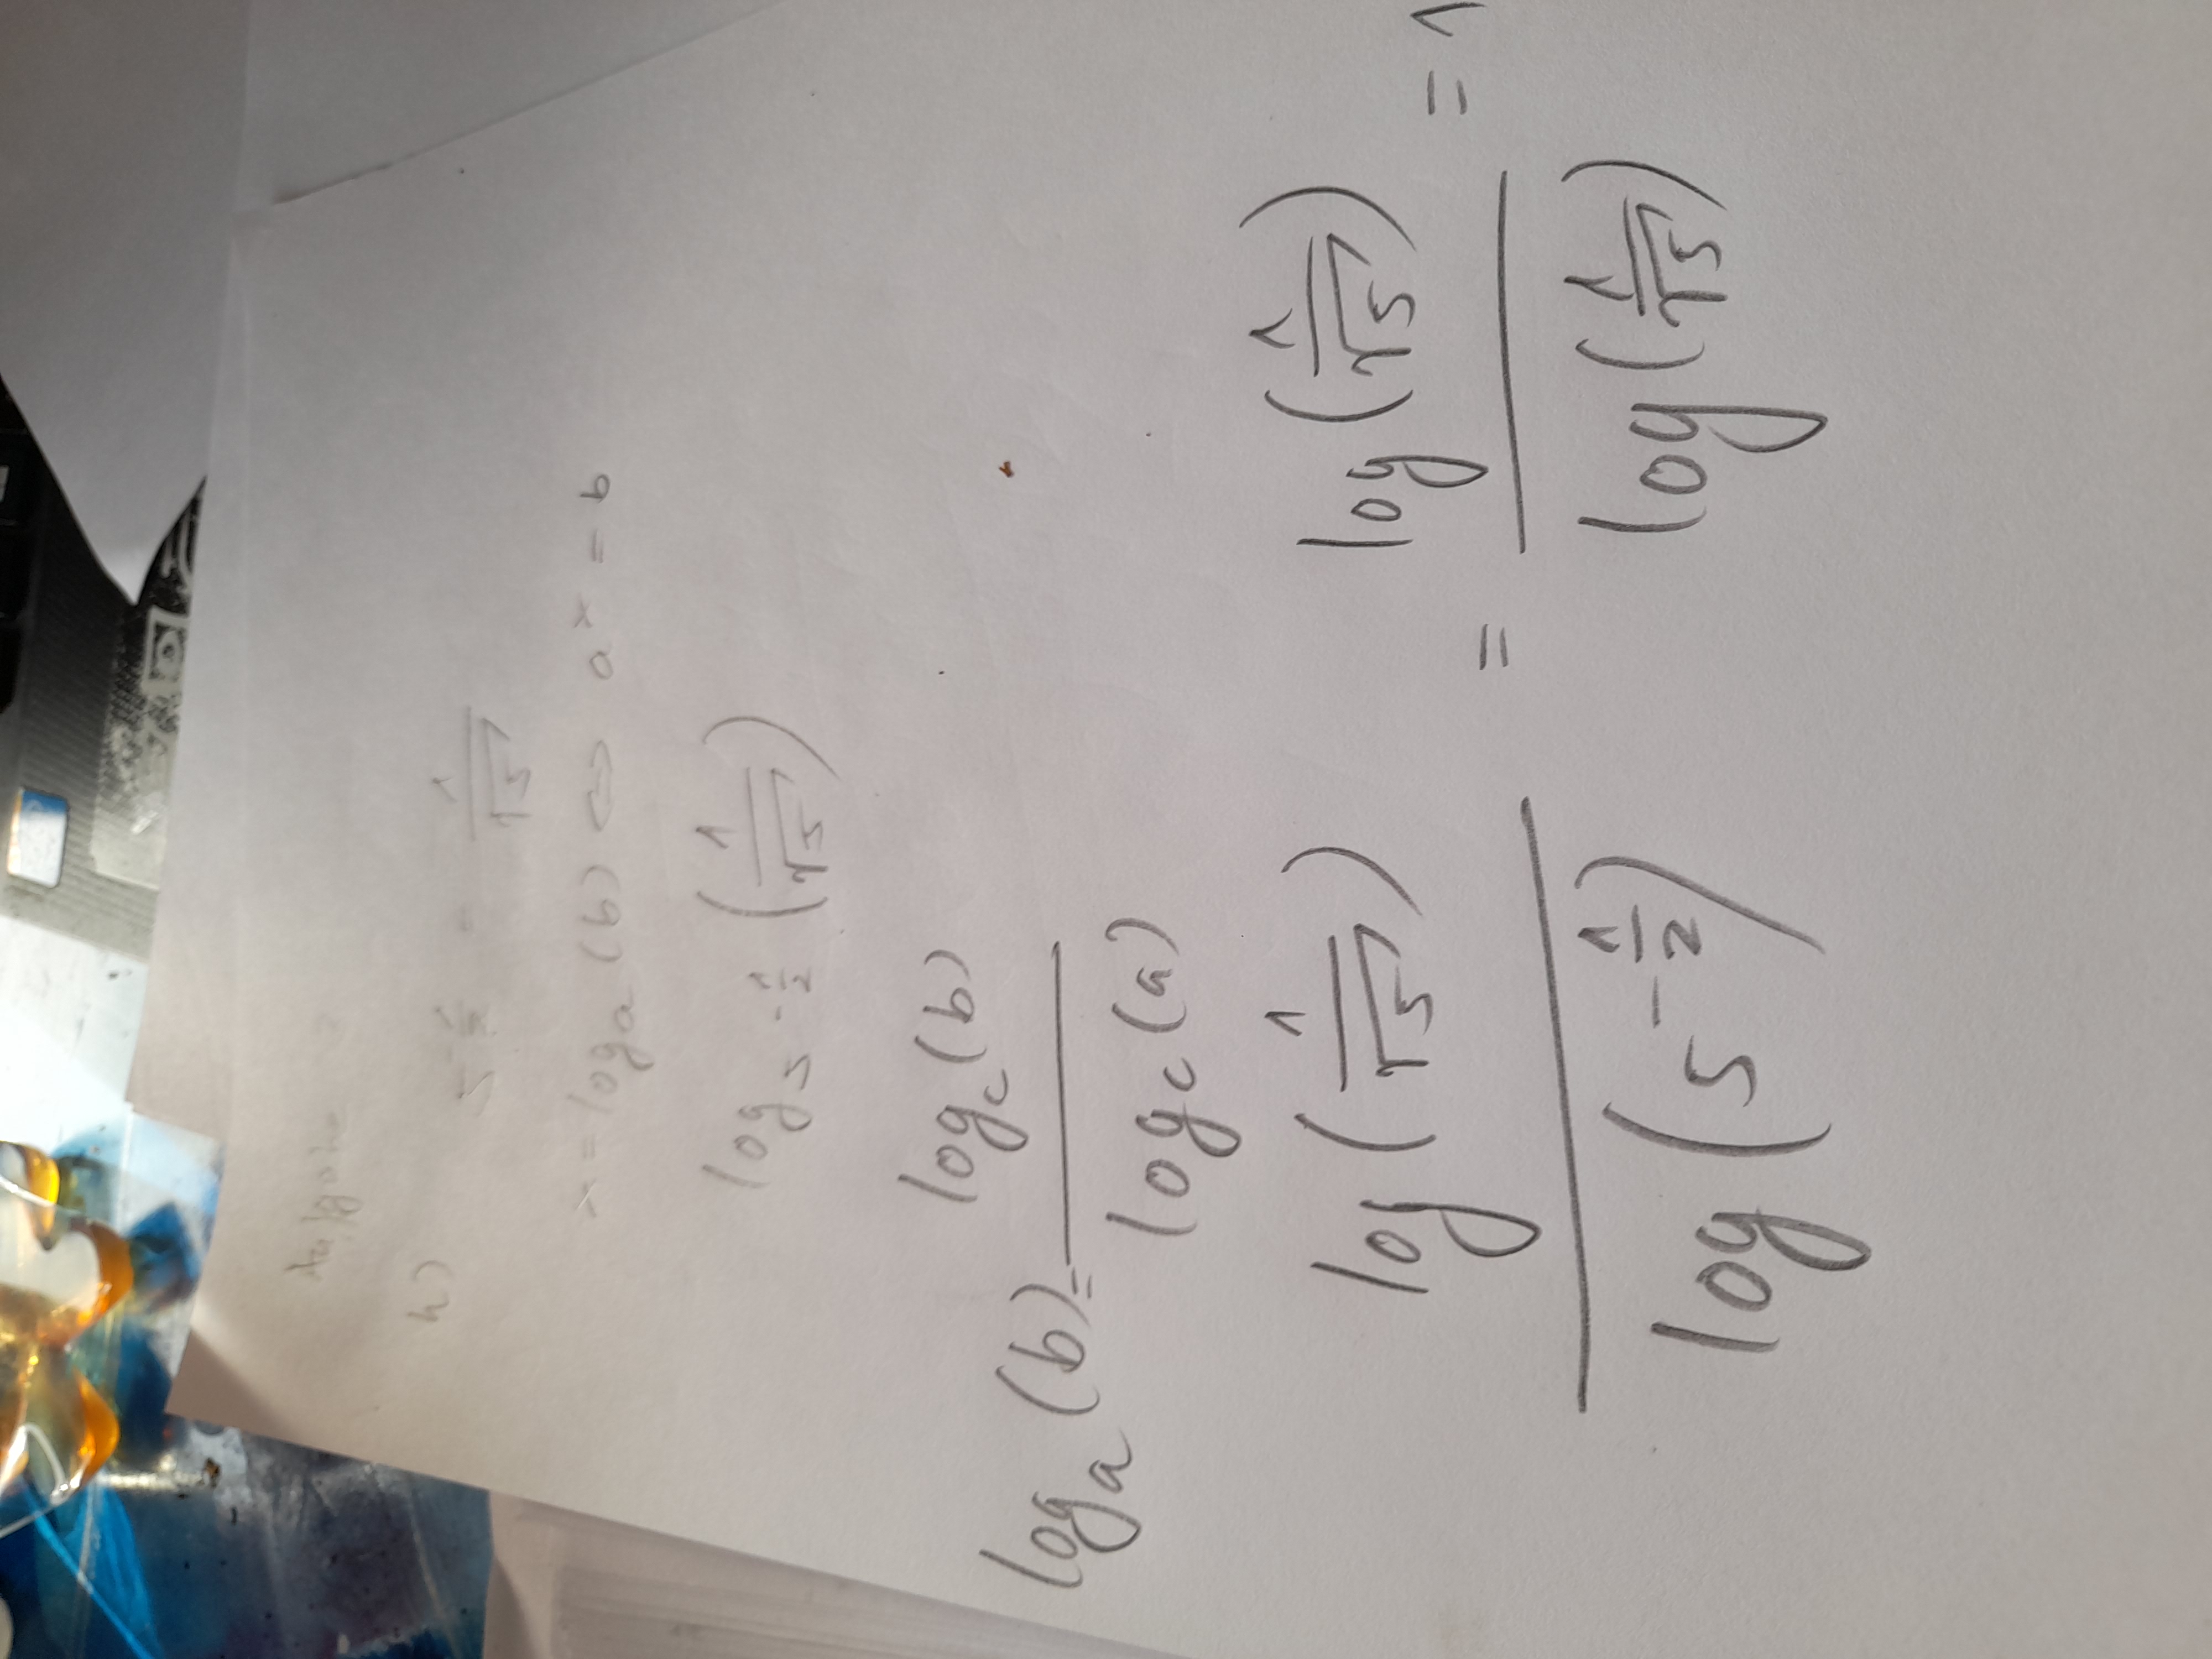 h)
5^{-\frac{1}{2}} = \frac{1}{\sqrt{5}}
x = log_a (b) ⇔ a^x = b
log_{5^{-\frac{1}{2}}} (\frac{1}{\sqrt{5}})
log_a (b) = \frac{log_c (b)}{log_c (a)}
\frac{log (\frac{1}{\sqrt{5}})}{log (5^{-\frac{1}{2}})} = \frac{log (\frac{1}{\sqrt{5}})}{log (\frac{1}{\sqrt{5}})} = 1